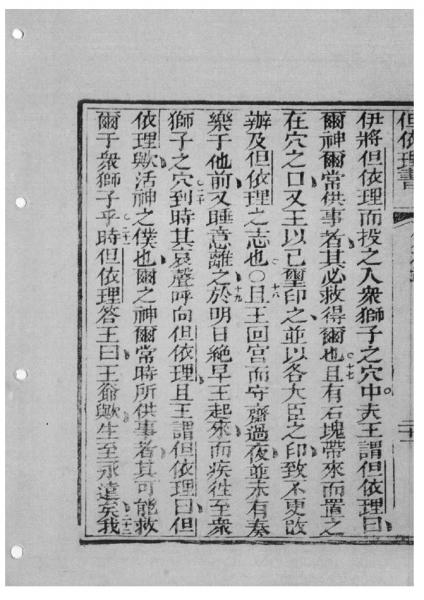 但依理書
伊將但依理而投之入衆獅子之穴中夫王謂但依理曰
爾神爾常供事者其必救得爾也且有石塊帶來而置之
在穴之口又王以己璽印之並以各大臣之印致不更改
辦及但依理之志也〇且王回宮而守齋過夜並未有奏
樂于他前又睡意離之於明日絕早王起來而疾徃至衆
獅子之穴到時其哀聲呼向但依理且王謂但依理曰但
依理歟活神之僕也爾之神爾常時所供事者其可能救
爾于衆獅子乎時但依理答王曰王爺歟生至永遠矣我